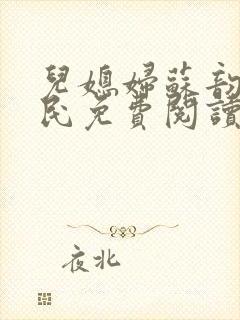 兒媳婦蘇韵
民免費閱讀
夜北